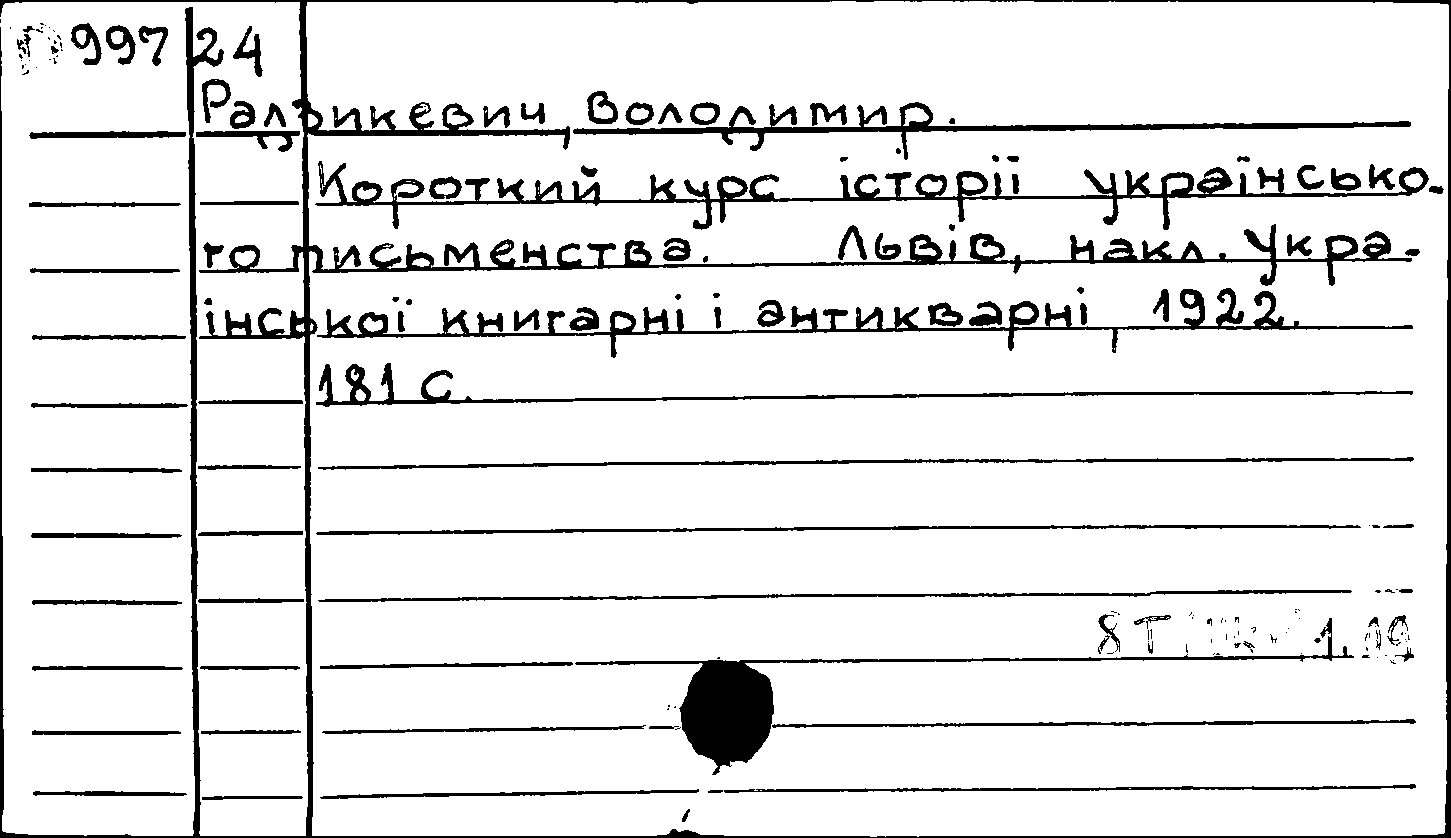 П997 24
Радзикевич, Володимир.
Короткий курс історії українсько-
го письменства. Львів, накл. Укра-
їнської книгарні і антикварні, 1922.
181 с.